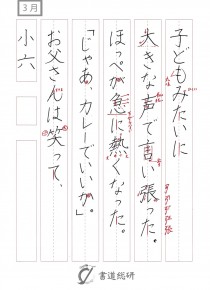 3月
子どもみたいに
大きな声で言い張った。
ほっぺが急に熱くなった。
「じゃあ、カレーでいいか」。
お父さんは笑って、
小六
書道総研